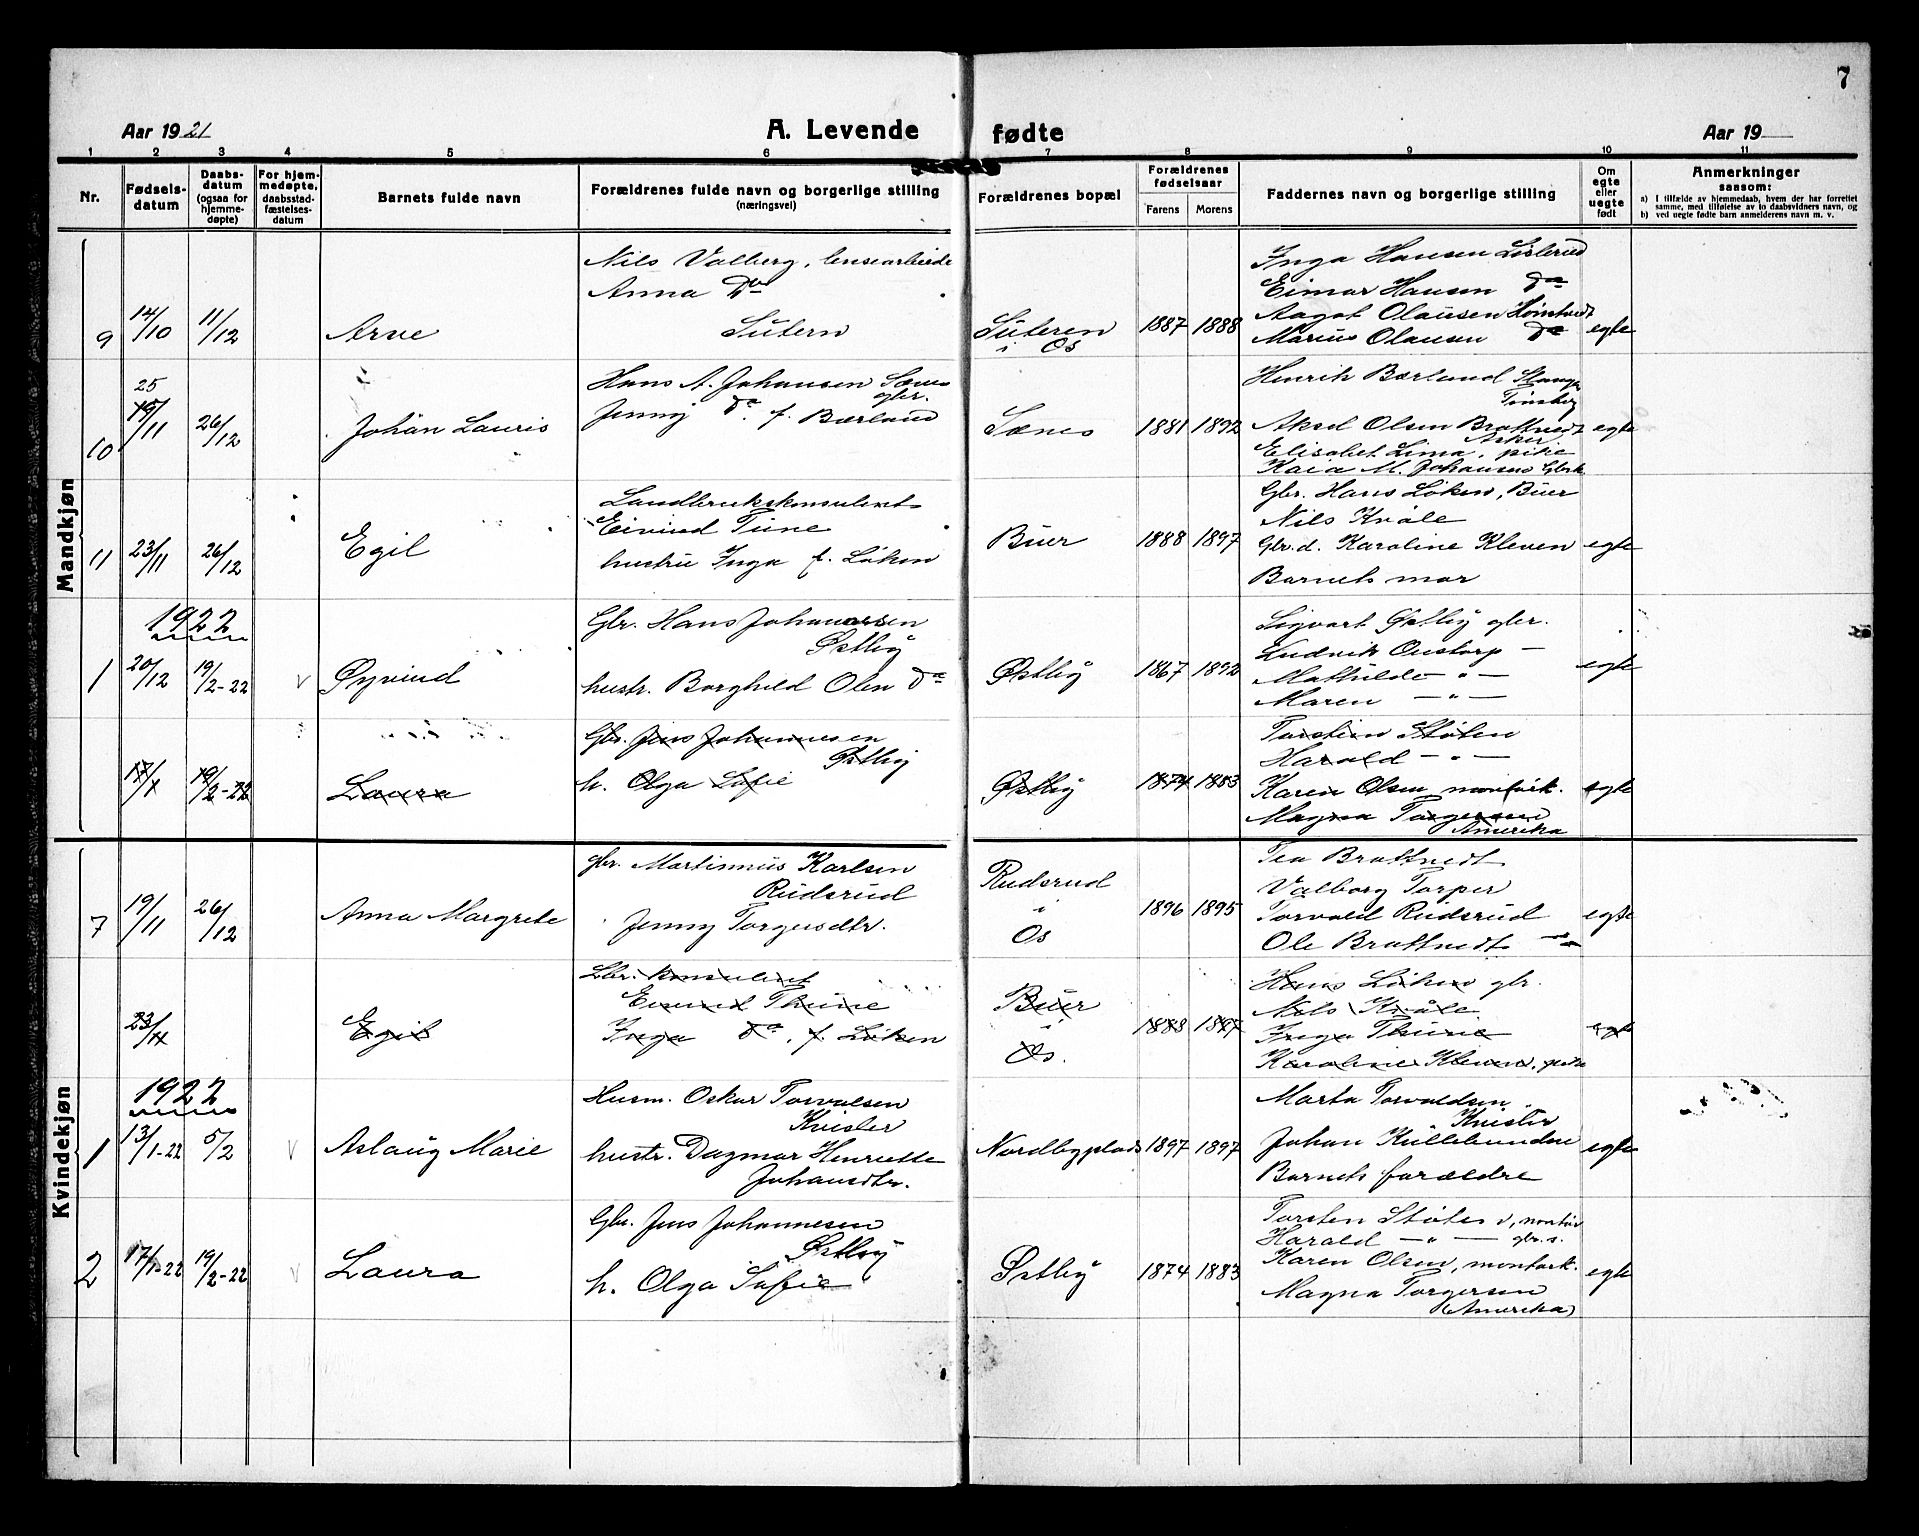 7
Aar 1921
A. Levende fødte
Aar 19
1 2 3 4 5 6 7 8 9 10 11
Nr.
Fødselsdatum
Daabsdatum (ogsaa for hjemmedøpte)
For hjemmedøpte, daabsstadfæstelsesdatum
Barnets fulde navn
Forældrenes fulde navn og borgerlige stilling (næringsvei)
Forældrenes bopæl
Forældrenes fødselsaar
Farens Morens
Faddernes navn og borgerlige stilling
Om egte eller uegte født
Anmerkninger
saasom:
a) I tilfælde av hjemmedaab, hvem der har forrettet samme, med tilføielse av to daabsvidners navn, og
b) ved uegte fødte barn anmelderens navn m. v.
Mandkjøn
9 14/10 11/12 Arve
Nils Valberg, lensearbeide
Anna Do
Sutern
Suteren
i Os
1887 1888
Inga Hansen Listerud
Eimar Hansen Do
Aagot Olausen
Marius Olausen Do
egte
10 25 19/11 26/12 Johan Lauris
Hans A. Johansen Sænes
gbr.
Jenny Do f. Bærland
Sænes
1881 1892
Henrik Bærland
Tønsberg
Aksel Olsen Brattvedt
Asker
Elisabet Lima, pike
Kaia M. Johansen
egte
11 23/11 26/12 Egil
Landbrukskonsulent
Eivind Tune
hustru Inga f. Løken
Buer
1888 1897
Gbr. Hans Løken, Buer
Nils Kvåle
Gbr.d. Karoline Kleven
Barnets mor
egte
1922
1 20/12 19/2-22 v Øyvind
Gbr. Hans Johannesen
Østby
hustr. Borghild Olen Do
Østby
1867 1892
Sigvart Østby gbr.
Ludvik Oustorp —
Mathilde — " —
Maren — " —
egte
17/1 19/2-22 Laura
Gbr. Jens Johannesen
Østby
h. Olga Sofie
Østby
1874 1883
Torstein Støten
Harald — " —
Karen Olsen montørk.
Magna Torgersen
Amerika
egte
Kvindekjøn
7 19/11 26/12 Anna Margrete
gbr. Martinius Karlsen
Rudsrud
Jenny Torgersdtr.
Rudsrud
i
Os
1896 1895
Tea Brattvedt
Valborg Torper
Torvald Rudsrud
Ole Brattvedt
egte
23/11 Egil
Lbr. konsulent
Eivind Thune
Inga Do, f. Løken
Buer
i
Os.
1888 1897
Hans Løken gbr.
Nils Kvåle
Inga Thune
Karoline Kleven, pike
egte
1922
1 13/1-22 5/2 v Aslaug Marie
Husm. Oskar Torvalsen
Knisler
hustr. Dagmar Henriette
Johansdtr.
Nordbyplads
1897 1897
Marta Torvaldsen
Knisler
Johan
Barnets forældre
egte
2 17/1-22 19/2-22 v Laura
Gbr. Jens Johannesen
Østby
h. Olga Sofie
Østby
1874 1883
Torsten Støten, montør
Harald — " — gbr.s.
Karen Olsen, montørk.
Magna Torgersen
(Amerika)
egte